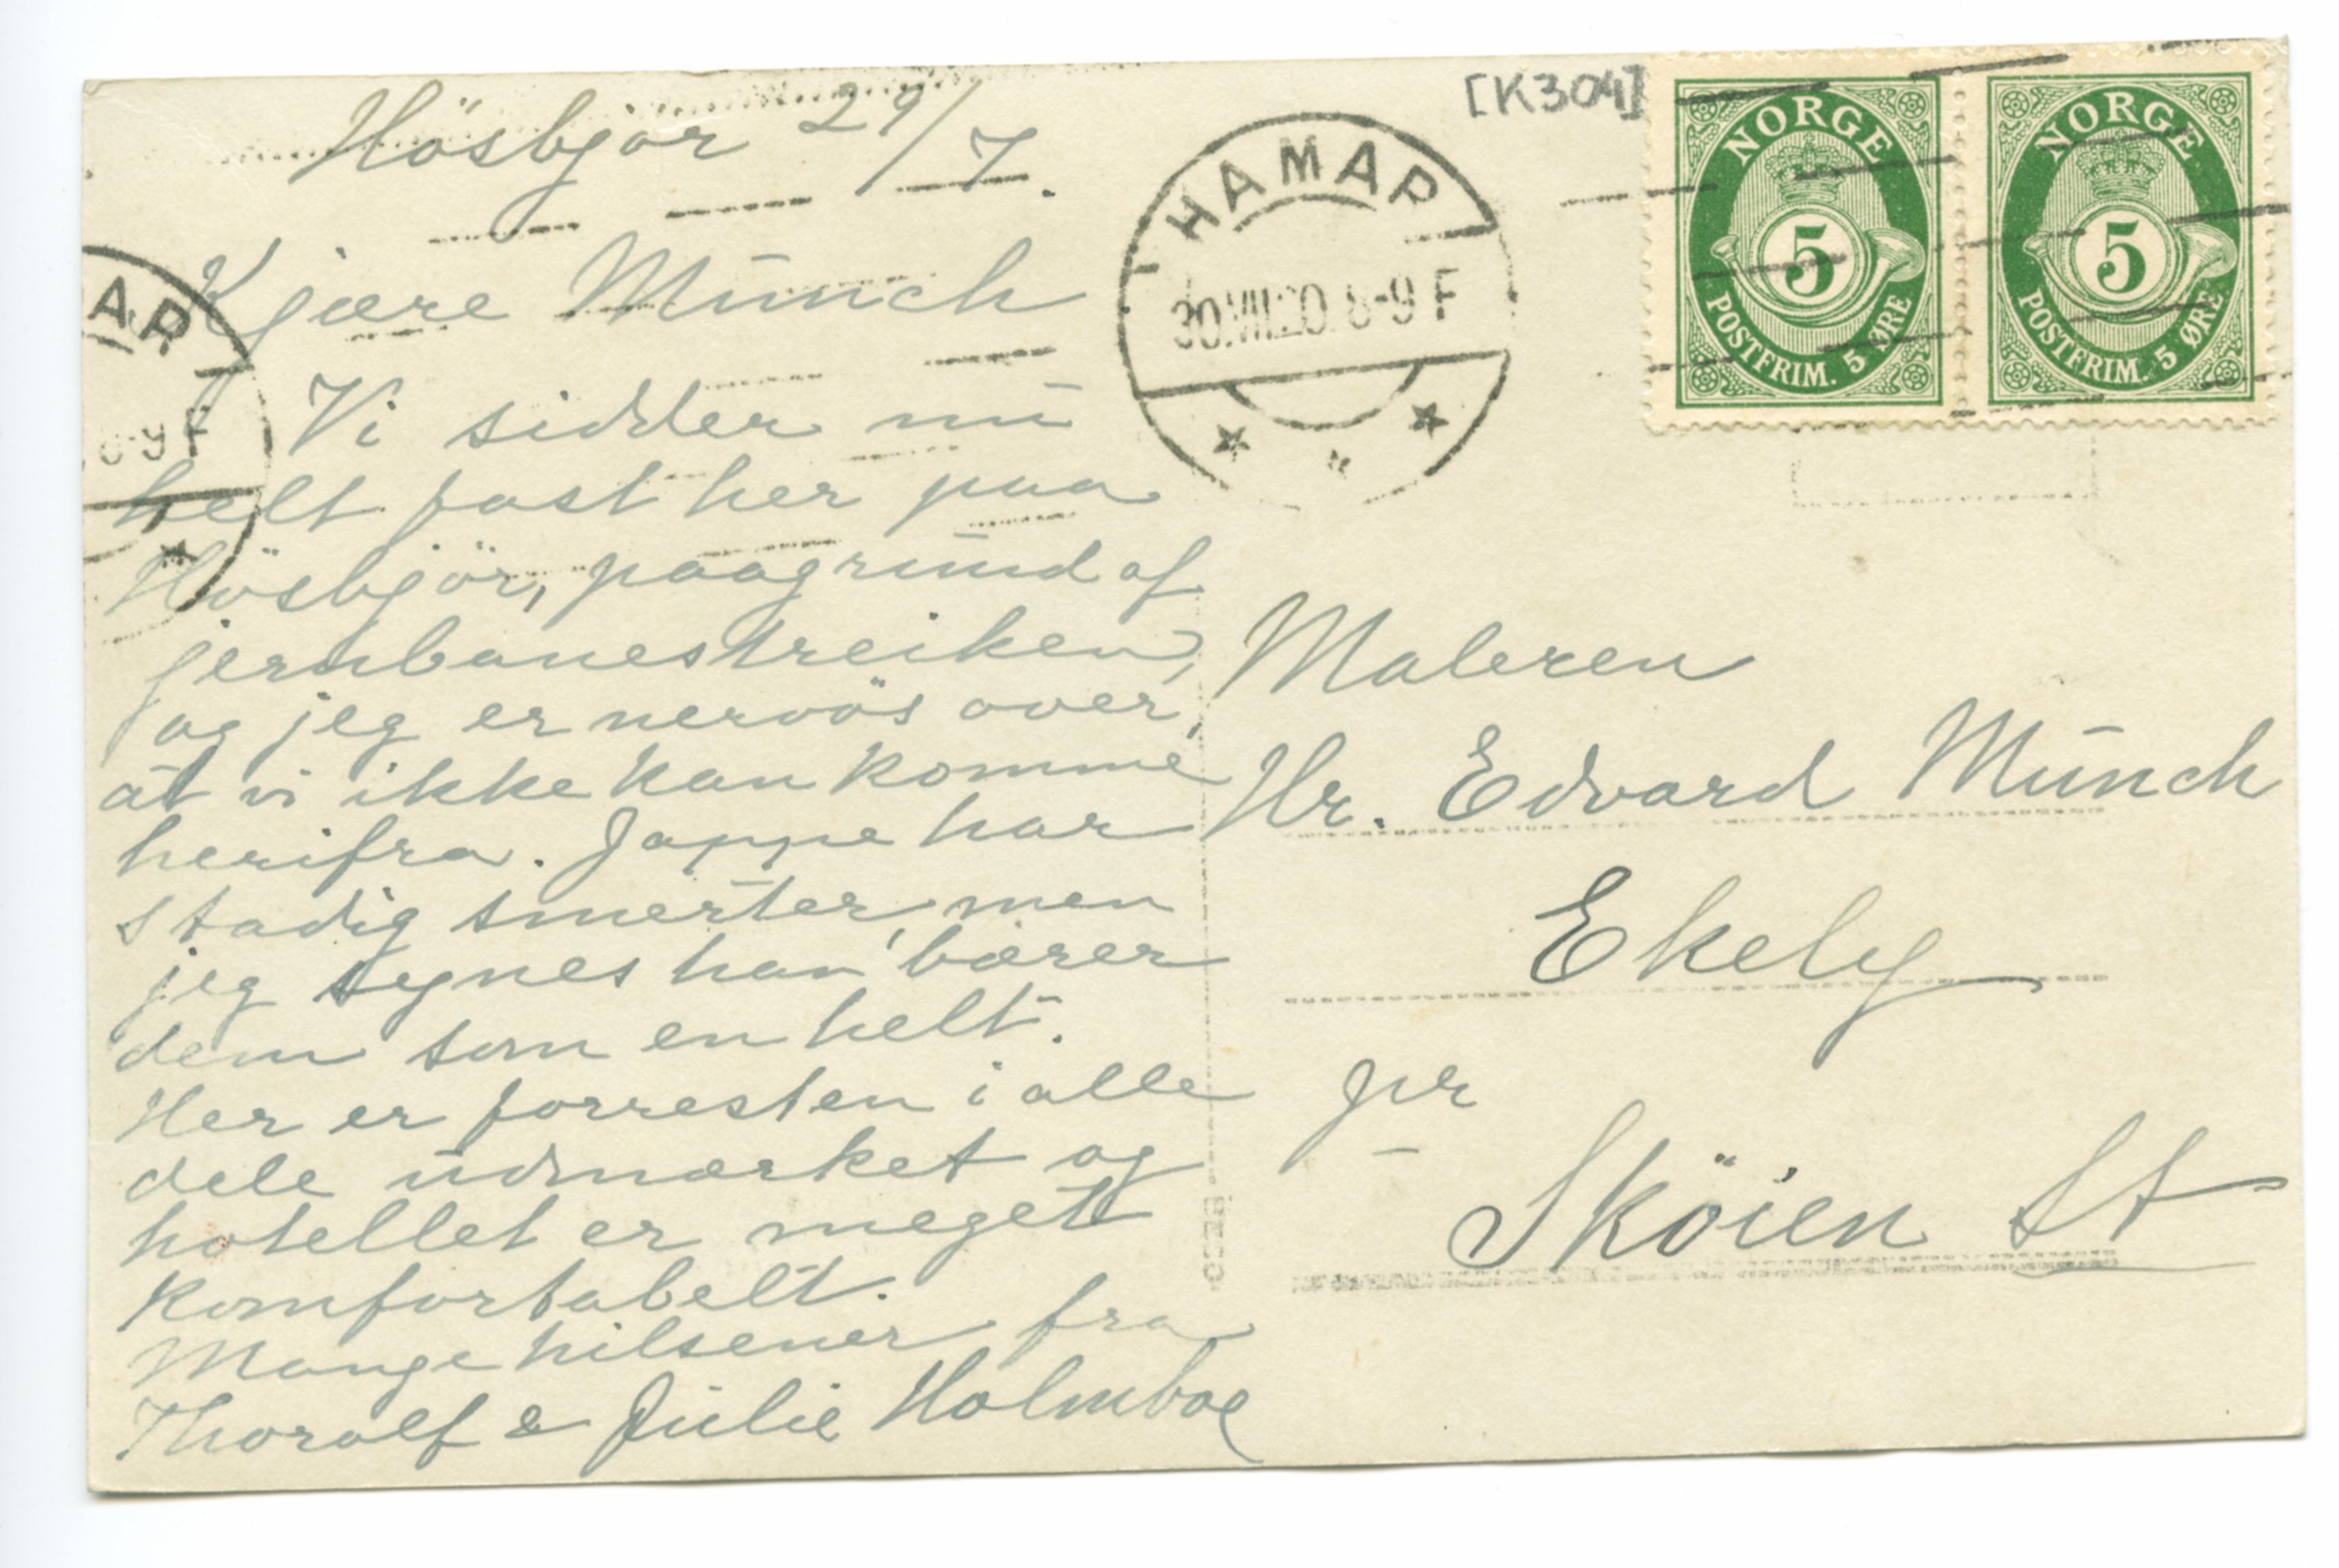 Hösbjör 29/7.
Kjære Münch
Vi sidder nu
helt fast her paa
Hösbjör, paagrund af
jernbanestreiken,
og jeg er nervös over,
at vi ikke kan komme
herifra. Jappe har
stadig smerter, men
jeg synes han bærer
dem som en helt.
Her er forresten i alle
dele udmærket og
hotellet er meget
komfortabelt.
Mange hilsener fra
Thorolf & Julie Holmboe
[K304]
HAMAR
30.VII.20. 8-9 F
AR
8-9 F
NORGE
5
POSTFRIM. 5 ØRE
NORGE
5
POSTFRIM. 5 ØRE
Maleren
Hr. Edvard Münch
Ekely
pr
Sköien St